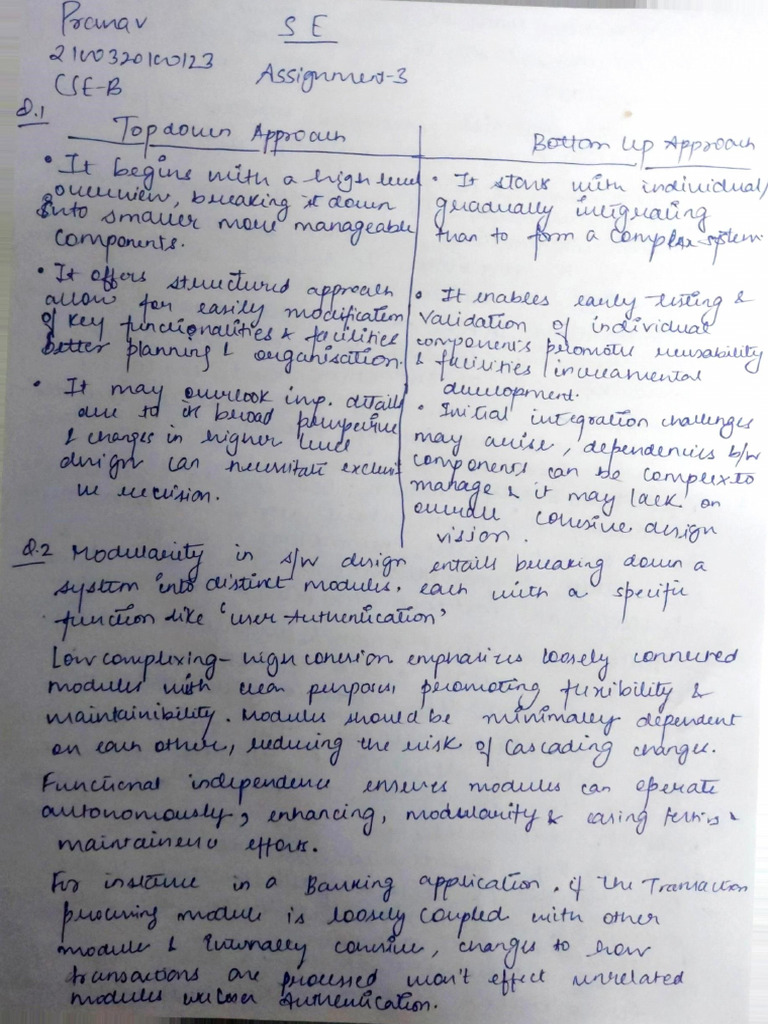 Pranav
2100320100123
CSE-B
S E
Assignment-3
Q.1
Topdown Approach
• It begins with a high level
overview, breaking it down
into smaller more manageable
components.
• It offers structured approach
allow for easily modification
of key functionalities & facilities
better planning & organisation.
• It may overlook imp. details
due to it broad perspective
& changes in higher level
design can necessitate
in revision.
Bottom Up Approach
• It stars with individual,
gradually integrating
than to form a complex system.
• It enables early testing &
validation of individual
components promote reusability
& facilities increamental
development.
• Initial integration challenges
may arise, dependencies b/w
components can be complex to
manage & it may lack on
overall cohesive design
vision.
Q.2 Modularity in s/w design entails breaking down a
system into distinct modules, each with a specific
function like 'user Authentication'
Low complexing - high cohesion emphasizes loosely connected
modules with clean purposes, promoting flexibility &
maintainibility. Modules should be minimally dependent
on each other, reducing the risk of cascading changes.
Functional independence ensures modules can operate
autonomously, enhancing, modularity & easing testing &
maintainenc efforts.
For instance in a Banking application, if the Transaction
processing module is loosely coupled with other
module & internally cohesive, changes to how
transactions are processed won't effect unrelated
modules like user Authentication.